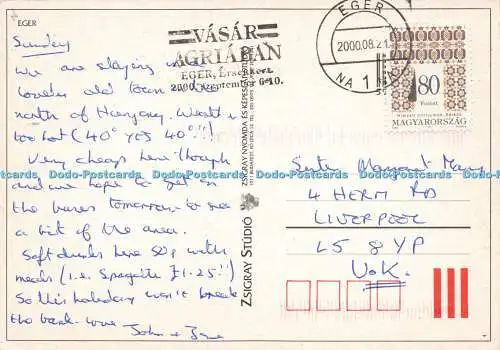 EGER
Sunday
We are staying in a
lovely old town in the
north of Hungary. Weather
too hot (40° yes 40°!!)
Very cheap here though
and we hope to get on
the buses tomorrow to see
a bit of the area.
Soft drinks here 50p with
meals (i.e. Spagetti £1.25!!)
So this holiday won't break
the bank. love John +
VÁSÁR
AGRIÁBAN
EGER, Érsekkert
2000. szeptember 6-10.
ZSIGRAY STÚDIÓ
ZSIGRAY NYOMDA ÉS KÉPESLAP
EGER
2000.08.21
NA 1
80
Forint
MAGYARORSZÁG
Margaret
4 HERM RD
LIVERPOOL
L5 8YP
U.K.
Dodo-Postcards Dodo-Postcards Dodo-Postcards Dodo-Postcards